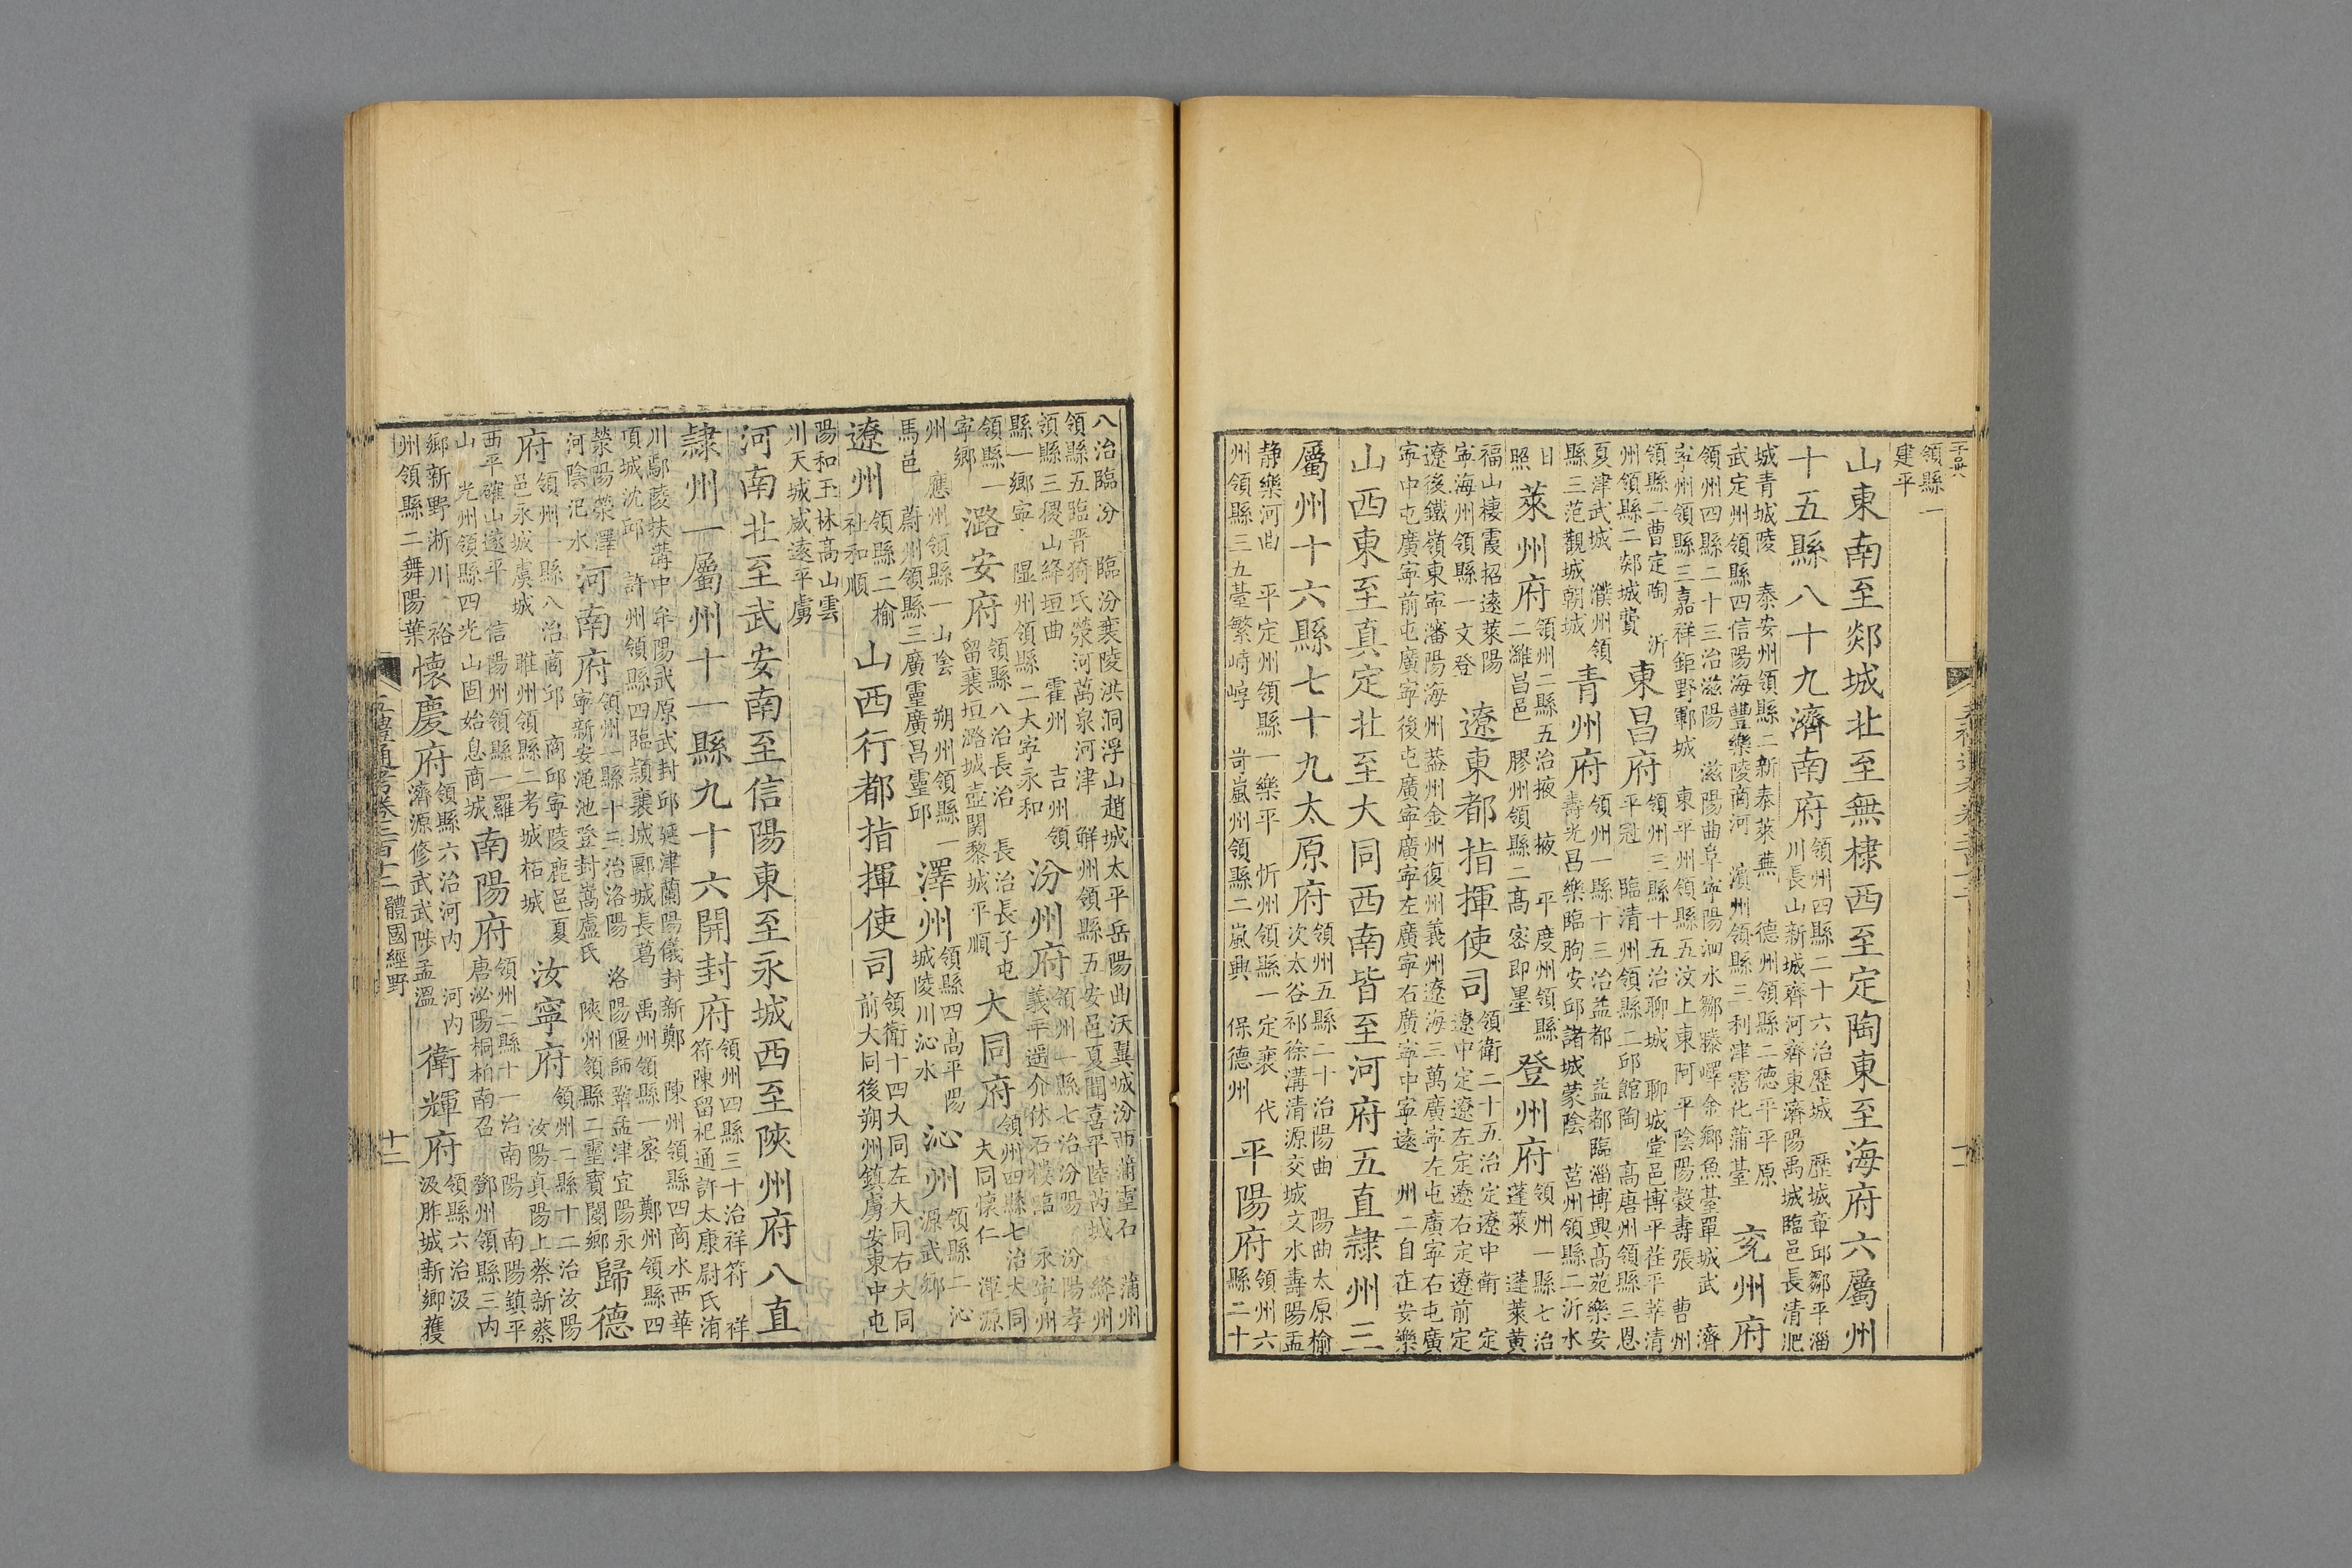 領縣一
建平
山東南至郯城北至無棣西至定陶東至海府六屬州
十五縣八十九濟南府
領州四縣二十六治歷城 歷城章邱鄒平淄
川長山新城齊河齊東濟陽禹城臨邑長清肥
城青城陵 泰安州領縣二新泰萊蕪 德州領縣二德平平原
武定州領縣四信陽海豐樂陵商河 濱州領縣三利津霑化蒲臺
兗州府
領州四縣二十三治滋陽 滋陽曲阜寧陽泗水鄒滕嶧金鄉魚臺單城武 濟
寧州領縣三嘉祥鉅野鄆城 東平州領縣五汶上東阿平陰陽穀壽張 曹州
領縣二曹定陶 沂
州領縣二郯城費
東昌府
領州三縣十五治聊城 聊城堂邑博平茌平莘清
平冠 臨清州領縣二邱館陶 高唐州領縣三恩
夏津武城 濮州領
縣三范觀城朝城
青州府
領州一縣十三治益都 益都臨淄博興高苑樂安
壽光昌樂臨朐安邱諸城蒙陰 莒州領縣二沂水
日
照
萊州府
領州二縣五治掖 掖 平度州領縣
二濰昌邑 膠州領縣二高密即墨
登州府
領州一縣七治
蓬萊 蓬萊黃
福山棲霞招遠萊陽
寧海州領縣一文登
遼東都指揮使司
領衛二十五治定遼中衛 定
遼中定遼左定遼右定遼前定
遼後鐵嶺東寧瀋陽海州葢州金州復州義州遼海三萬廣寧左屯廣寧右屯廣
寧中屯廣寧前屯廣寧後屯廣寧廣寧左廣寧右廣寧中寧遠 州二自在安樂
山西東至真定北至大同西南皆至河府五直隸州三
屬州十六縣七十九太原府
領州五縣二十治陽曲 陽曲太原榆
次太谷祁徐溝清源交城文水壽陽盂
静樂河曲 平定州領縣一樂平 忻州領縣一定襄 代
州領縣三五臺繁峙崞 岢嵐州領縣二嵐興 保德州
平陽府
領州六
縣二十
八治臨汾 臨汾襄陵洪洞浮山趙城太平岳陽曲沃翼城汾西蒲靈石 蒲州
領縣五臨晋猗氏滎河萬泉河津 解州領縣五安邑夏聞喜平陸芮城 絳州
領縣三稷山絳垣曲 霍州 吉州領
縣一鄉寧 隰州領縣二大寧永和
汾州府
領州一縣七治汾陽 汾陽孝
義平遥介休石樓臨 永寧州
領縣一
寧鄉
潞安府
領縣八治長治 長治長子屯
留襄垣潞城壺關黎城平順
大同府
領州四縣七治大同
大同懷仁 渾源
州 應州領縣一山陰 朔州領縣一
馬邑 蔚州領縣三廣靈廣昌靈邱
澤州
領縣四高平陽
城陵川沁水
沁州
領縣二沁
源武鄉
遼州
領縣二榆
社和順
山西行都指揮使司
領衛十四大同左大同右大同
前大同後朔州鎮虜安東中屯
陽和玉林高山雲
川天城威遠平虜
河南北至武安南至信陽東至永城西至陝州府八直
隸州一屬州十一縣九十六開封府
領州四縣三十治祥符 祥
符陳留杞通許太康尉氏洧
川鄢陵扶溝中牟陽武原武封邱延津蘭陽儀封新鄭 陳州領縣四商水西華
項城沈邱 許州領縣四臨潁襄城郾城長葛 禹州領縣一密 鄭州領縣四
滎陽滎澤
河陰汜水
河南府
領州一縣十三治洛陽 洛陽偃師鞏孟津宜陽永
寧新安澠池登封嵩盧氏 陝州領縣二靈寶閿鄉
歸德
府
領州一縣八治商邱 商邱寧陵鹿邑夏
邑永城虞城 睢州領縣二考城柘城
汝寧府
領州二縣十二治汝陽
汝陽真陽上蔡新蔡
西平確山遂平 信陽州領縣一羅
山 光州領縣四光山固始息商城
南陽府
領州二縣十一治南陽 南陽鎮平
唐泌陽桐柏南召 鄧州領縣三内
鄉新野淅川 裕
州領縣二舞陽葉
懷慶府
領縣六治河内 河内
濟源修武武陟孟溫
衛輝府
領縣六治汲
汲胙城新鄉獲
五禮通考卷二百十二 體國經野
十二